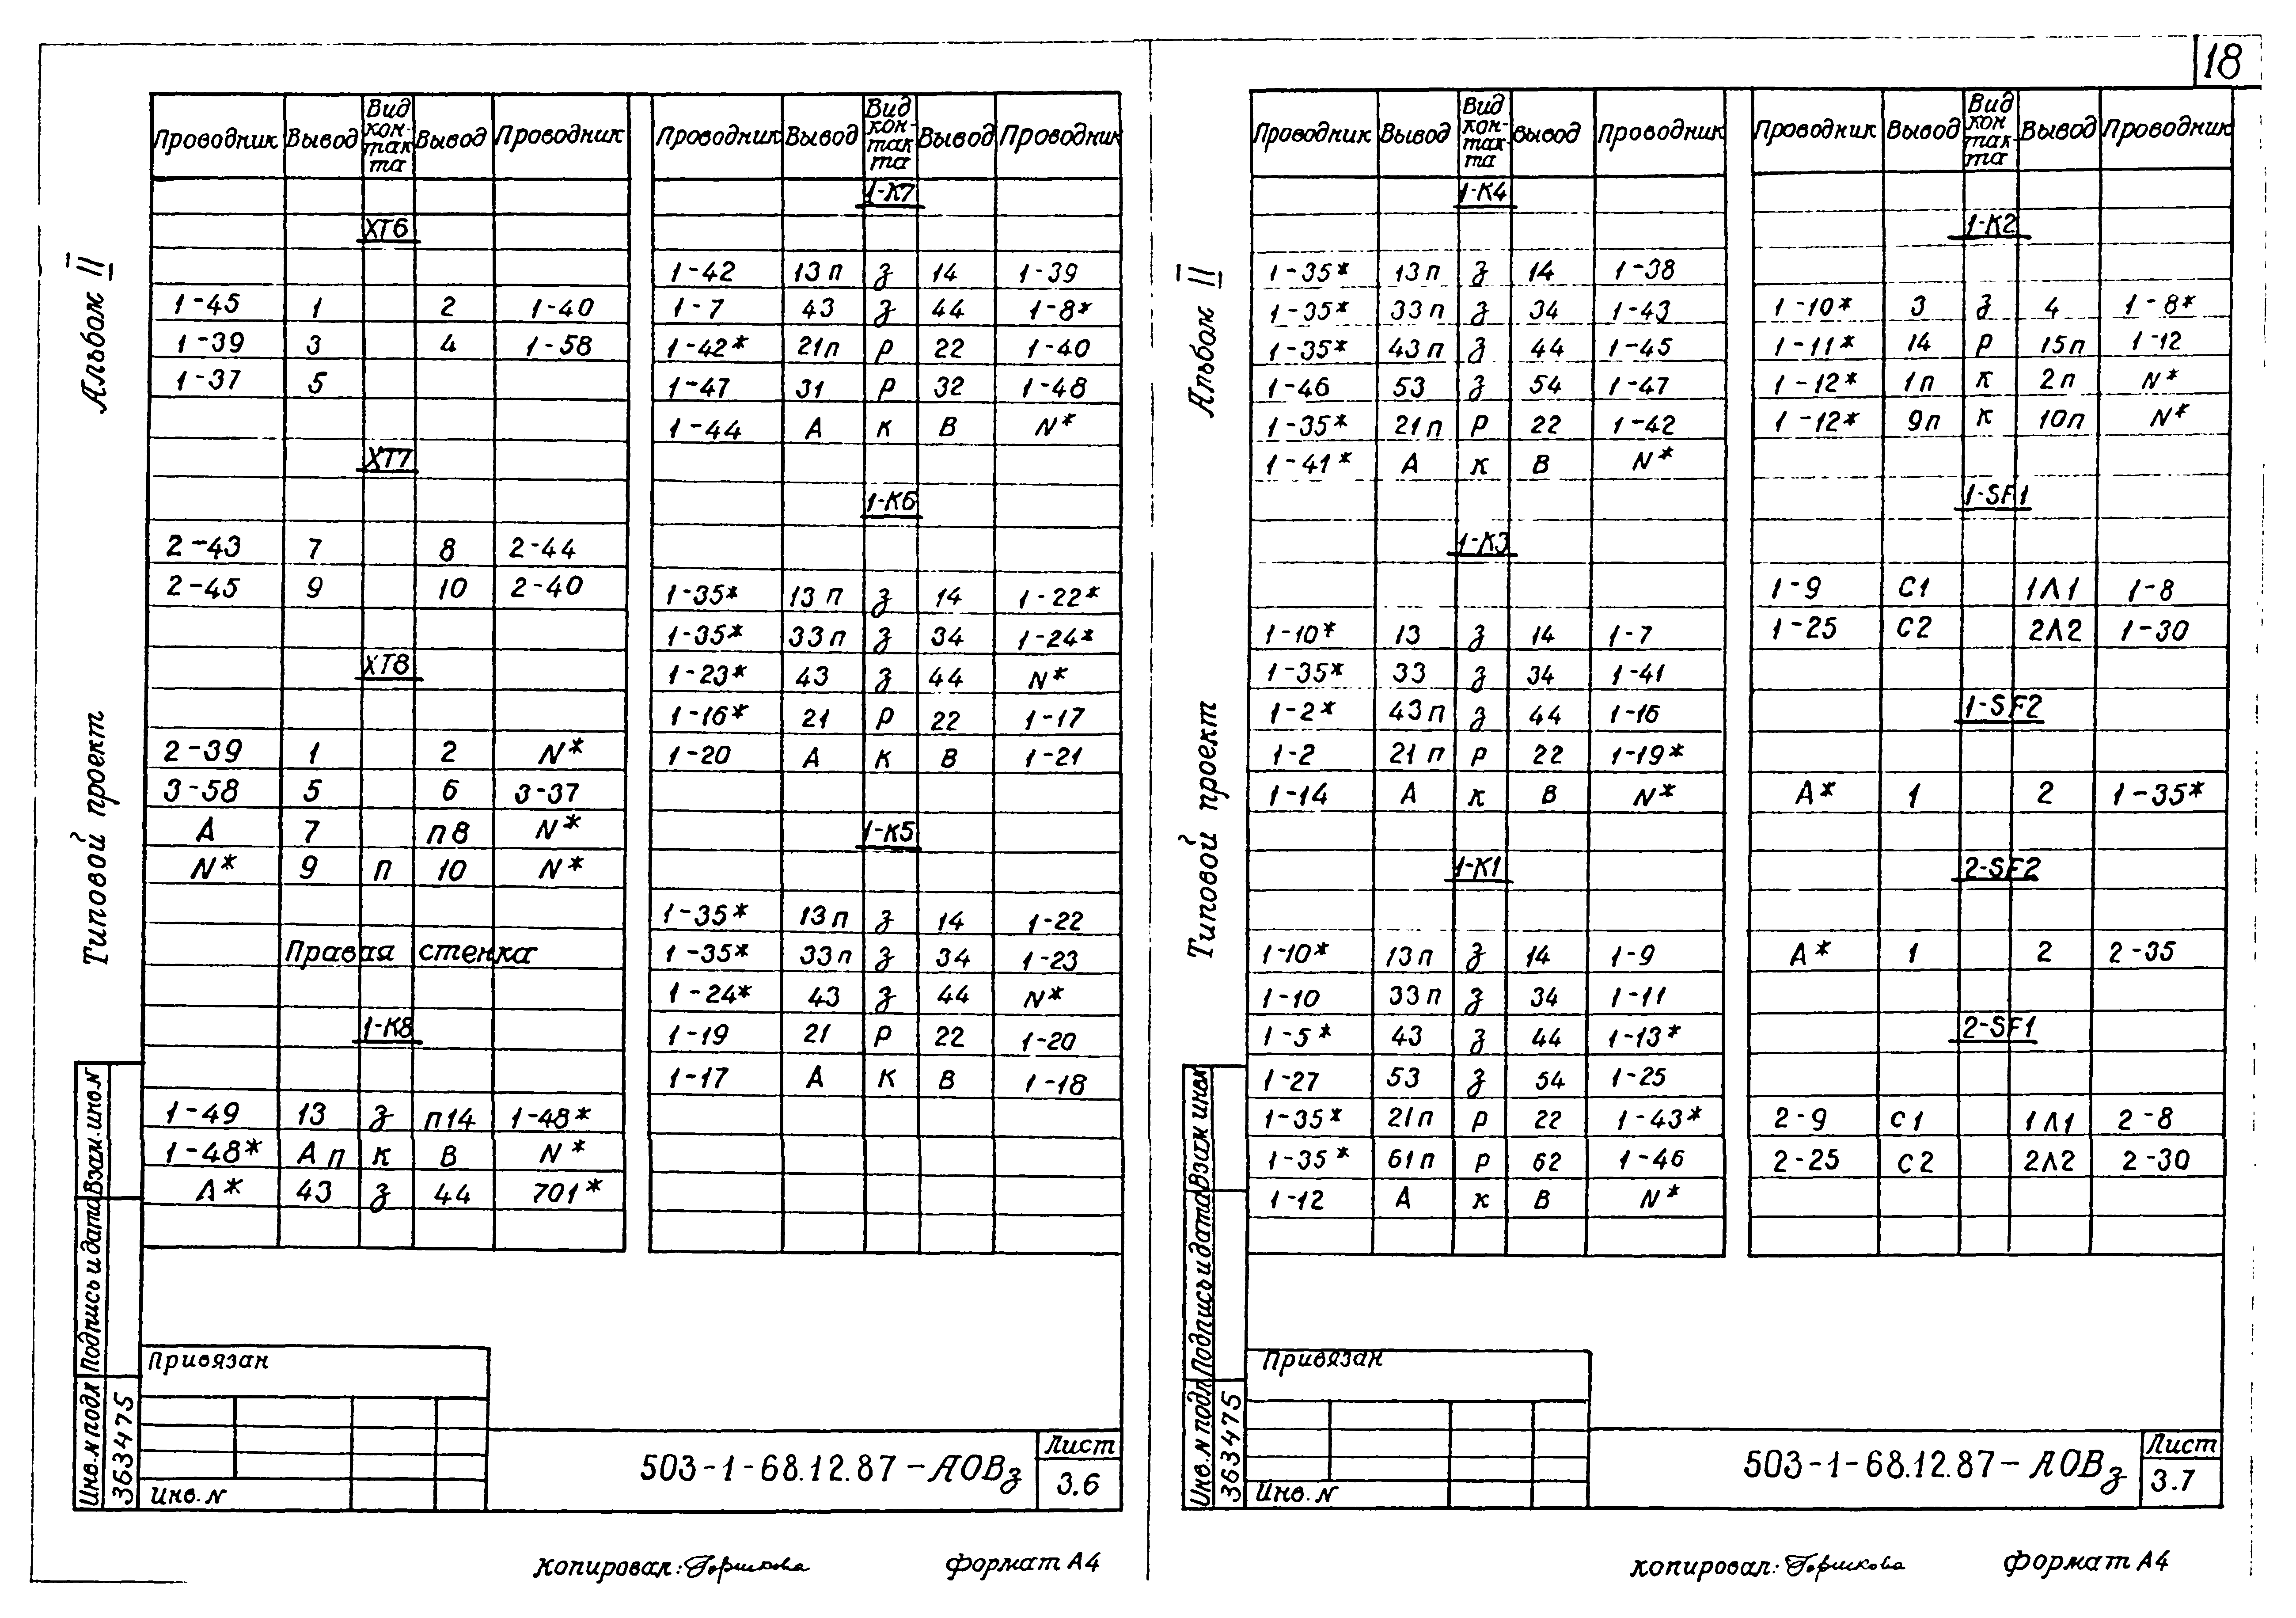 18
Альбом II
Типовой проект
Проводник Вывод Вид контакта Вывод Проводник
XT6
1-45 1 2 1-40
1-39 3 4 1-58
1-37 5
XT7
2-43 7 8 2-44
2-45 9 10 2-40
XT8
2-39 1 2 N*
3-58 5 6 3-37
А 7 п8 N*
N* 9 п 10 N*
Правая стенка
1-К8
1-49 13 з п14 1-48*
1-48* А п к В N*
А* 43 з 44 701*
Проводник Вывод Вид контакта Вывод Проводник
1-К7
1-42 13 п з 14 1-39
1-7 43 з 44 1-8*
1-42* 21п р 22 1-40
1-47 31 р 32 1-48
1-44 А к В N*
1-К6
1-35* 13 п з 14 1-22*
1-35* 33 п з 34 1-24*
1-23* 43 з 44 N*
1-16* 21 р 22 1-17
1-20 А к В 1-21
1-К5
1-35* 13 п з 14 1-22
1-35* 33 п з 34 1-23
1-24* 43 з 44 N*
1-19 21 р 22 1-20
1-17 А к В 1-18
Взам. инв. N
Подпись и дата
Инв. N подл
3633475
Привязан
Инв. N
503-1-68.12.87-АОВз
Лист
3.6
Копировал: Горшкова
Формат А4
Альбом II
Типовой проект
Проводник Вывод Вид контакта Вывод Проводник
1-К4
1-35* 13 п з 14 1-38
1-35* 33 п з 34 1-43
1-35* 43 п з 44 1-45
1-46 53 з 54 1-47
1-35* 21 п р 22 1-42
1-41* А к В N*
1-К3
1-10* 13 з 14 1-7
1-35* 33 з 34 1-41
1-2* 43 п з 44 1-16
1-2 21 п р 22 1-19*
1-14 А к В N*
1-К1
1-10* 13 п з 14 1-9
1-10 33 п з 34 1-11
1-5* 43 з 44 1-13*
1-27 53 з 54 1-25
1-35* 21п р 22 1-43*
1-35* 61п р 62 1-46
1-12 А к В N*
Проводник Вывод Вид контакта Вывод Проводник
1-К2
1-10* 3 з 4 1-8*
1-11* 14 р 15п 1-12
1-12* 1п к 2п N*
1-12* 9п к 10п N*
1-SF1
1-9 С1 1Л1 1-8
1-25 С2 2Л2 1-30
1-SF2
А* 1 2 1-35*
2-SF2
А* 1 2 2-35
2-SF1
2-9 С1 1Л1 2-8
2-25 С2 2Л2 2-30
Взам инв N
Подпись и дата
Инв. N подл
3633475
Привязан
Инв. N
503-1-68.12.87-АОВз
Лист
3.7
Копировал: Горшкова
Формат А4